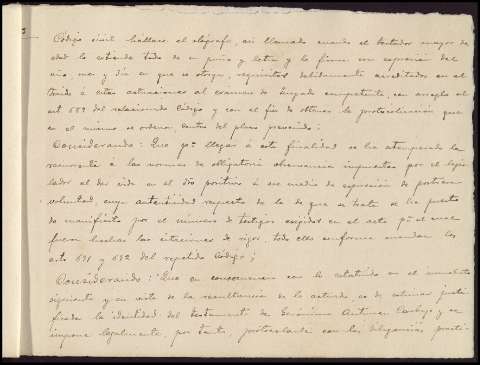 Código civil hállase el ológrafo, así llamado cuando el testador mayor de
edad lo extiende todo de su puño y letra y lo firma con expresión del
año, mes y día en que se otorga, requisitos debidamente acreditados en el
traído á estas actuaciones al examen de Juzgado competente, con arreglo al
art 689 del relacionado Código y con el fin de obtener la protocolización que
en el mismo se ordena, dentro del plazo prevenido;
Considerando: Que pª llegar á esta finalidad se ha atemperado la
recurrente á las normas de obligatoria observancia impuestas por el legis
lador al dar vida en el dro positivo á ese medio de expresión de postrera
voluntad, cuya autenticidad respecto de la de que se trata se ha puesto
de manifiesto por el número de testigos exigidos en el acto pª el cual
fueron hechas las citaciones de rigor, todo ello conforme mandan los
arts 691 y 692 del repetido Código;
Considerando: Que en consonancia con lo estatuído en el inmediato
siguiente y en vista de la resultancia de lo actuado, es de estimar justi
ficada la identidad del testamento de Gerónimo y se
impone legalmente, por tanto, protocolarle con las diligencias practi-